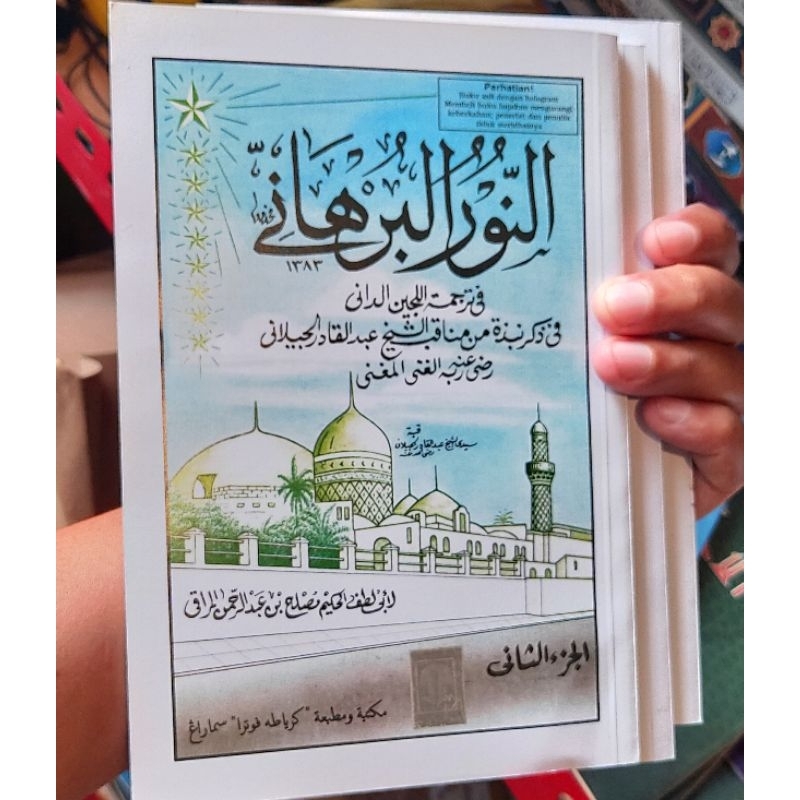 Perhatian!
Buku asli dengan hologram
Membajak buku hajatan mengurangi
keberkahan, penerbit dan penulis
tidak meridhainya
النُّوْرُ الْبُرْهَانِيّ
١٣٨٣
فى ترجمة اللجين الدانى
فى ذكر نبذة من مناقب الشيخ عبد القادر الجيلانى
رضى عنه ربه الغنى المغنى
قبة
سيدى الشيخ عبد القادر الجيلانى
رضى الله عنه
لابى لطف الحكيم مصلح بن عبد الرحمن المراقى
الجزء الثانى
مكتبة ومطبعة "كرياطه فوترا" سماراڠ